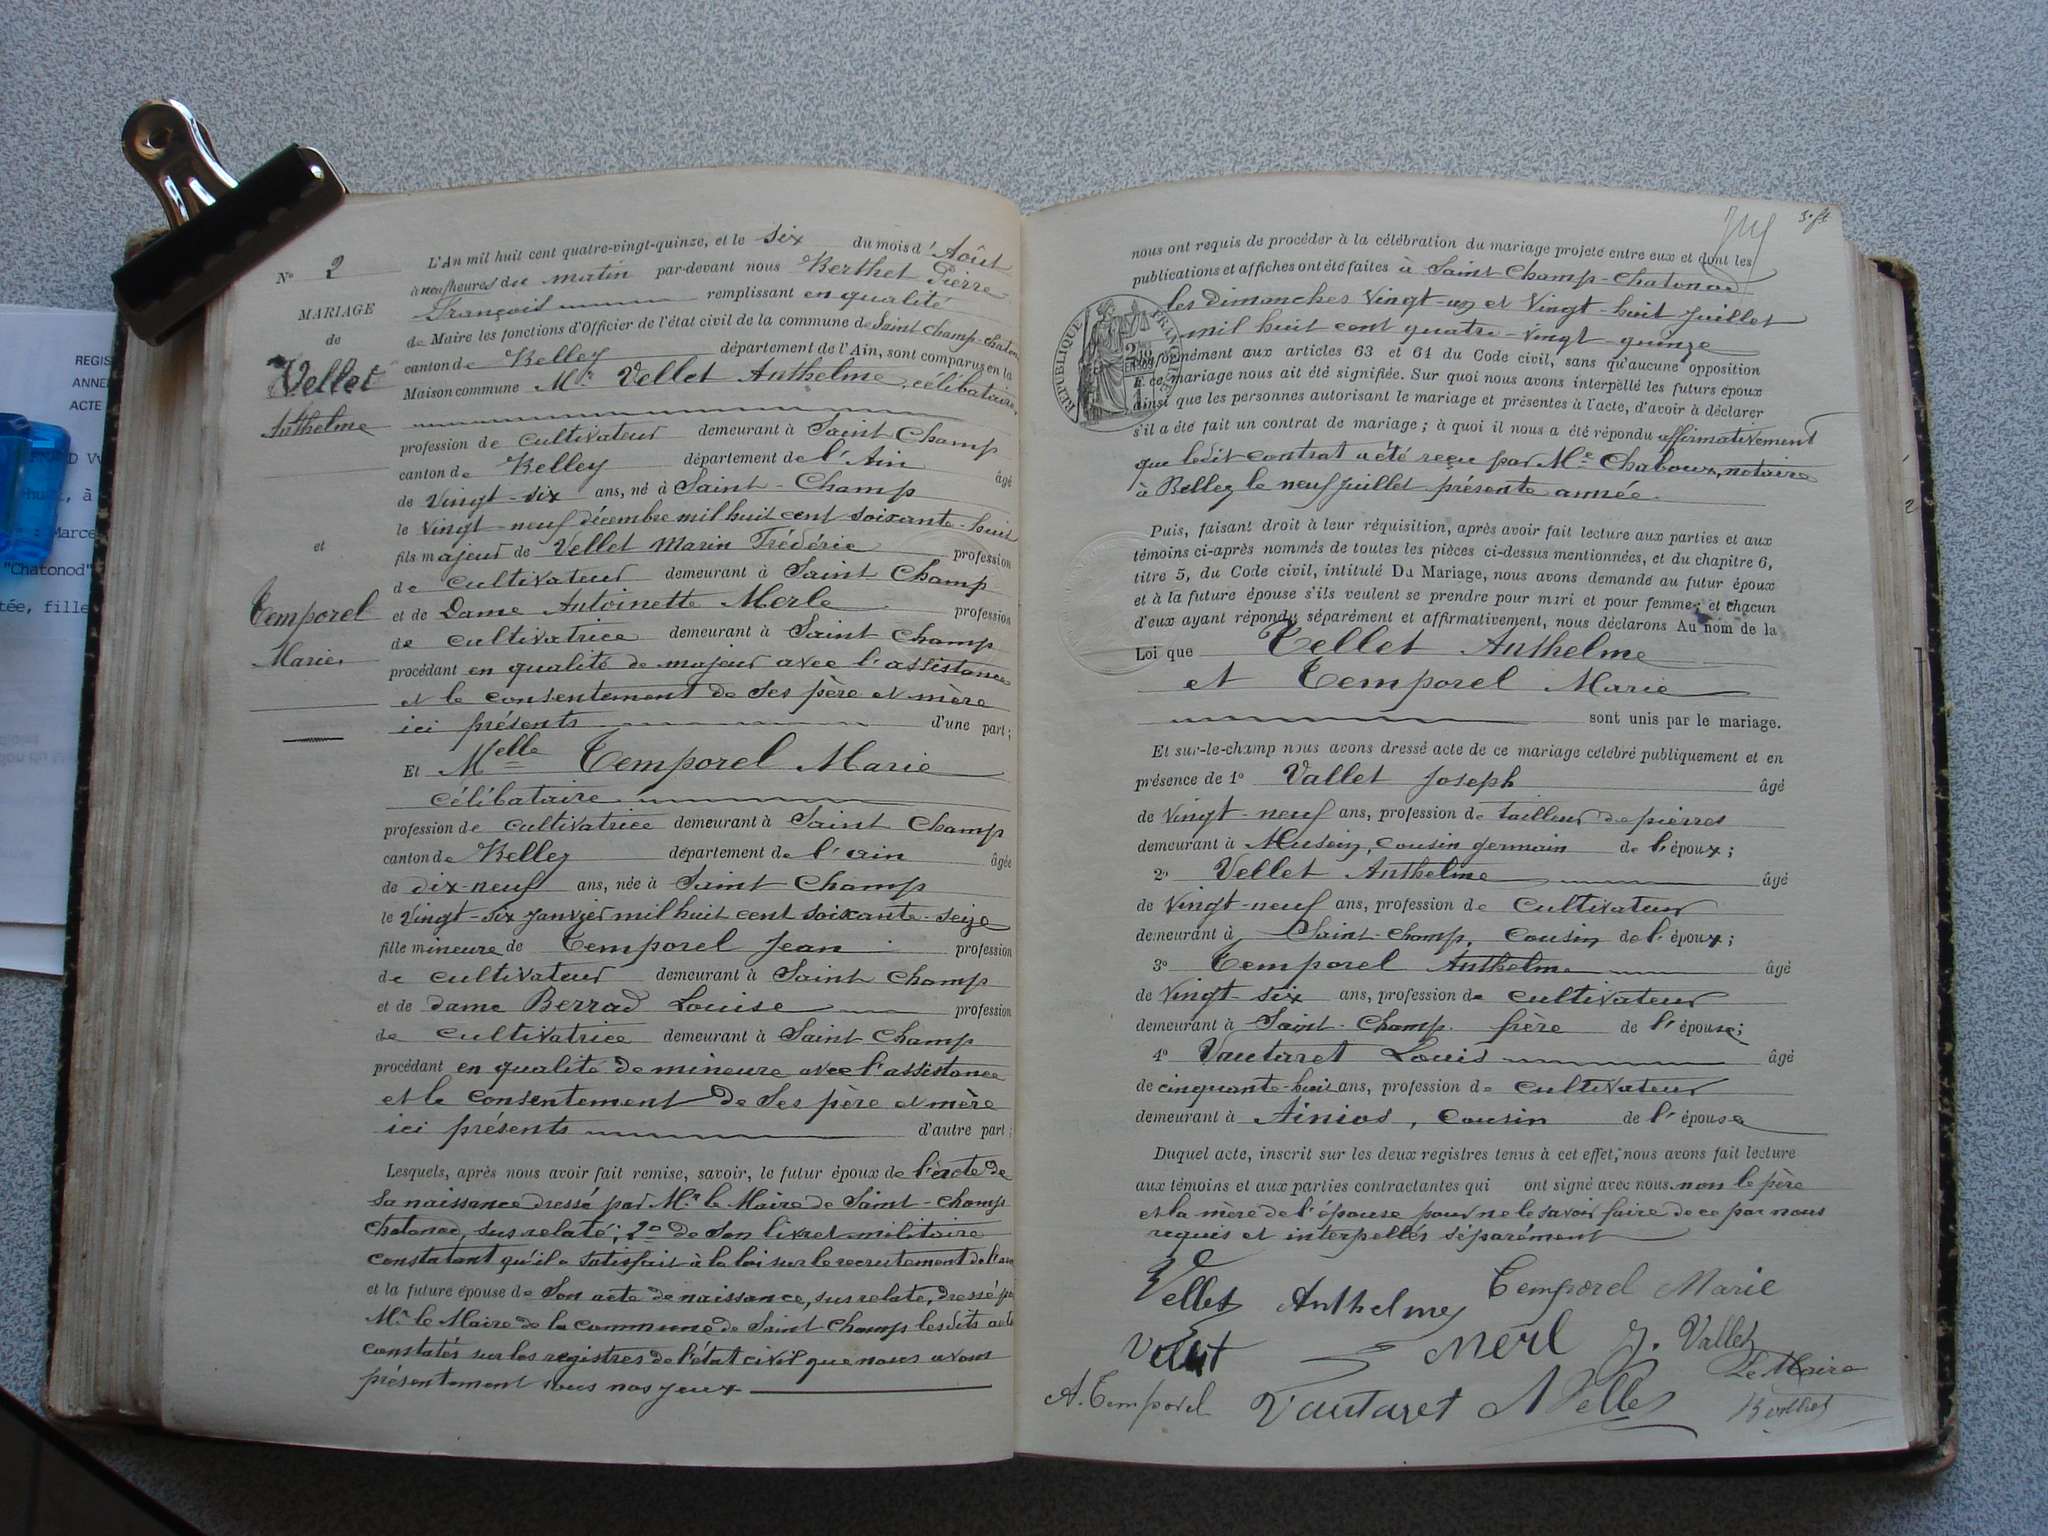 N° 2
MARIAGE
de
Vellet
Anthelme
et
Temporel
Marie
L'An mil huit cent quatre-vingt-quinze, et le six du mois d'Août
à neuf heures du matin par-devant nous Berthet Pierre
François remplissant en qualité
de Maire les fonctions d'Officier de l'état civil de la commune de Saint Champ-Chaton
canton de Belley département de l'Ain, sont comparus en la
Maison commune Mr Vellet Anthelme, célibataire,
profession de cultivateur demeurant à Saint Champ
canton de Belley département de l'Ain âgé
de vingt-six ans, né à Saint-Champ
le vingt-neuf décembre mil huit cent soixante-huit
fils majeur de Vellet Marin Frédéric profession
de cultivateur demeurant à Saint Champ
et de Dame Antoinette Merle profession
de cultivatrice demeurant à Saint Champ
procédant en qualité de majeur avec l'assistance
et le consentement de ses père et mère
ici présents d'une part;
Et Melle Temporel Marie
célibataire
profession de cultivatrice demeurant à Saint Champ
canton de Belley département de l'ain âgée
de dix-neuf ans, née à Saint Champ
le vingt-six janvier mil huit cent soixante-seize
fille mineure de Temporel Jean profession
de cultivateur demeurant à Saint Champ
et de dame Berrad Louise profession
de cultivatrice demeurant à Saint Champ
procédant en qualité de mineure avec l'assistance
et le consentement de ses père et mère
ici présents d'autre part;
Lesquels, après nous avoir fait remise, savoir, le futur époux de l'acte de
sa naissance dressé par Mr le Maire de Saint-Champ
Chatonod, susrelaté; 2° de son livret militaire
constatant qu'il a satisfait à la loi sur le recrutement de l'
et la future épouse de son acte de naissance, susrelaté, dressé
Mr le Maire de la commune de Saint-Champ lesdits
constatés sur les registres de l'état civil que nous avons
présentement sous nos yeux
nous ont requis de procéder à la célébration du mariage projeté entre eux et dont les
publications et affiches ont été faites à Saint Champ-Chatonod
les Dimanches vingt-un et vingt-huit juillet
mil huit cent quatre-vingt-quinze
RÉPUBLIQUE FRANÇAISE
conformément aux articles 63 et 64 du Code civil, sans qu'aucune opposition
à ce mariage nous ait été signifiée. Sur quoi nous avons interpellé les futurs époux
ainsi que les personnes autorisant le mariage et présentes à l'acte, d'avoir à déclarer
s'il a été fait un contrat de mariage; à quoi il nous a été répondu affirmativement
que ledit contrat a été reçu par Me Chaboux, notaire
à Belley le neuf juillet présente année.
Puis, faisant droit à leur réquisition, après avoir fait lecture aux parties et aux
témoins ci-après nommés de toutes les pièces ci-dessus mentionnées, et du chapitre 6,
titre 5, du Code civil, intitulé Du Mariage, nous avons demandé au futur époux
et à la future épouse s'ils veulent se prendre pour mari et pour femme; et chacun
d'eux ayant répondu séparément et affirmativement, nous déclarons Au nom de la
Loi que Vellet Anthelme
et Temporel Marie
sont unis par le mariage.
Et sur-le-champ nous avons dressé acte de ce mariage célébré publiquement et en
présence de 1° Vallet Joseph âgé
de vingt-neuf ans, profession de tailleur de pierres
demeurant à Musin, cousin germain de l'époux;
2° Vellet Anthelme âgé
de vingt-neuf ans, profession de cultivateur
demeurant à Saint-Champ, cousin de l'époux;
3° Temporel Anthelme âgé
de vingt-six ans, profession de cultivateur
demeurant à Saint-Champ frère de l'épouse;
4° Vautaret Louis âgé
de cinquante-huit ans, profession de cultivateur
demeurant à Ainios, cousin de l'épouse
Duquel acte, inscrit sur les deux registres tenus à cet effet, nous avons fait lecture
aux témoins et aux parties contractantes qui ont signé avec nous. non le père
et la mère de l'épouse pour ne le savoir faire de ce par nous
requis et interpellés séparément
Vellet Anthelme Temporel Marie
Merl J. Vallet
Le Maire
A. Temporel Vautaret A Vellet Berthet
REGIS
ANNE
ACTE
: Marce
"Chatonod"
tée, fille